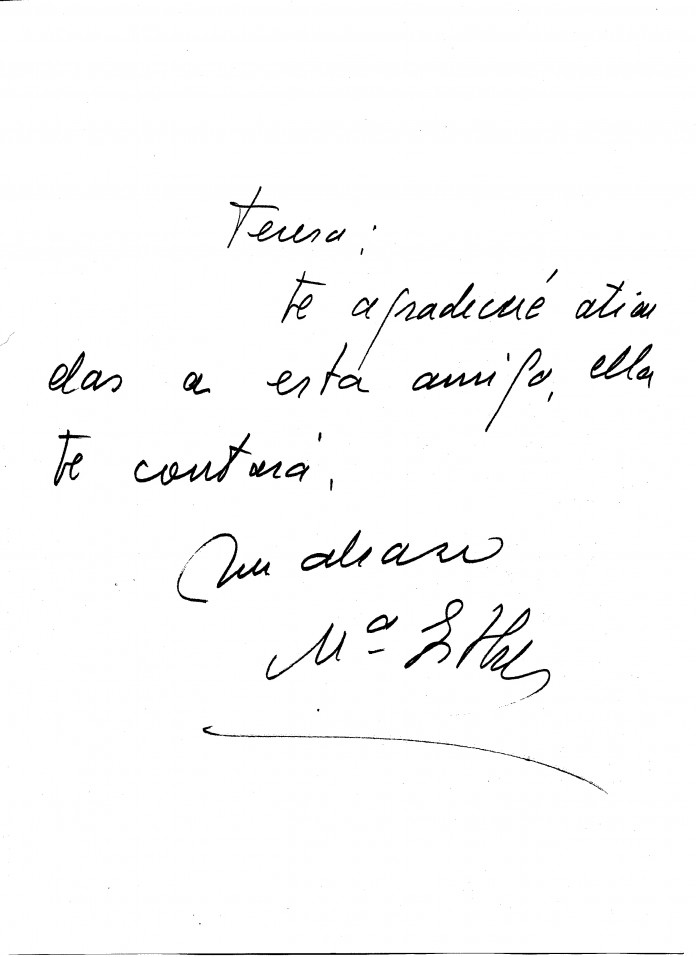 Teresa:
te agradeceré atien
das a está amiga, ella
te contará.
Un abrazo
Mª Esther